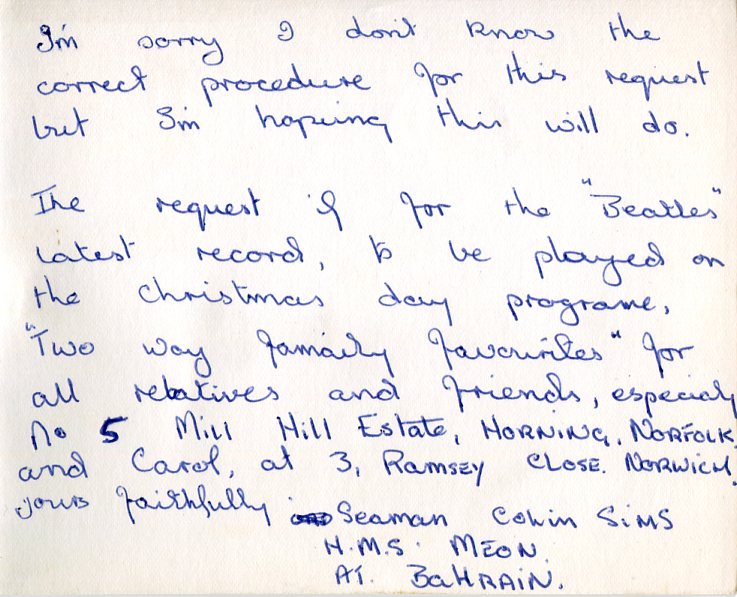 I'm sorry I don't know the
correct procedure for this request
but I'm hoping this will do.
The request if for the "Beatles"
latest record, to be played on
the christmas day programe,
"Two way family favourites" for
all relatives and friends, especialy
No 5 Mill Hill Estate, HORNING, NORFOLK,
and Carol, at 3, RAMSEY CLOSE. NORWICH.
yours faithfully Seaman Colin SIMS
H.M.S. MEON.
AT. BAHRAIN.